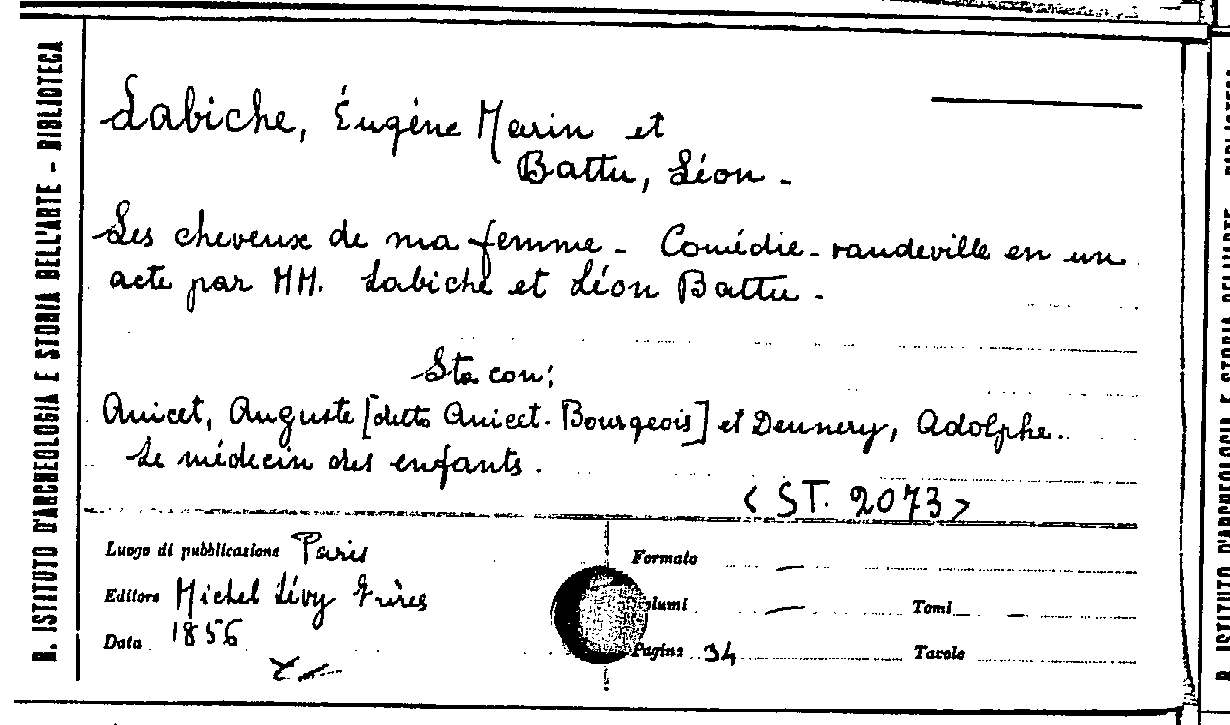 R. ISTITUTO D'ARCHEOLOGIA E STORIA DELL'ARTE - BIBLIOTECA
Labiche, Éugène Marin et
Battu, Léon -
Les cheveux de ma femme - Comédie-vaudeville en un
acte par MM. Labiche et Léon Battu -
Sta con:
Anicet, Auguste [detto Anicet-Bourgeois] et Dennery, Adolphe.
Le médecin des enfants.
<ST. 2073>
Luogo di pubblicazione Paris
Editore Michel Lévy Frères
Data 1856
Formato —
Volumi — Tomi —
Pagine 34 Tavole